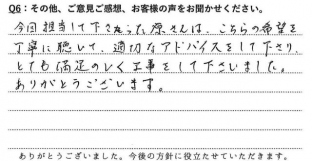 Q6：その他、ご意見ご感想、お客様の声をお聞かせください。
今回担当して下さった原さんは、こちらの希望を
丁寧に聴いて、適切なアドバイスをして下さり、
とても満足のいく工事をして下さいました。
ありがとうございます。
ありがとうございました。今後の方針に役立たせていただきます。